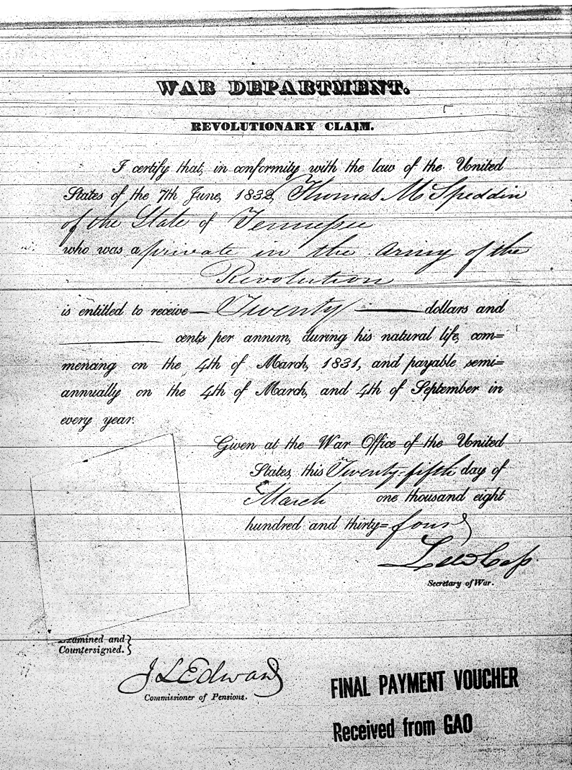 WAR DEPARTMENT.
REVOLUTIONARY CLAIM.
I certify that, in conformity with the law of the United
States of the 7th June, 1832, Thomas McSpeddin
of the State of Tennessee
who was a private in the Army of the
Revolution
is entitled to receive Twenty dollars and
cents per annum, during his natural life, com=
mencing on the 4th of March, 1831, and payable semi=
annually on the 4th of March, and 4th of September in
every year.
Given at the War Office of the United
States, this Twenty-fifth day of
March one thousand eight
hundred and thirty=four
Lew Cass
Secretary of War.
Examined and
Countersigned.
J L Edwards
Commissioner of Pensions.
FINAL PAYMENT VOUCHER
Received from GAO